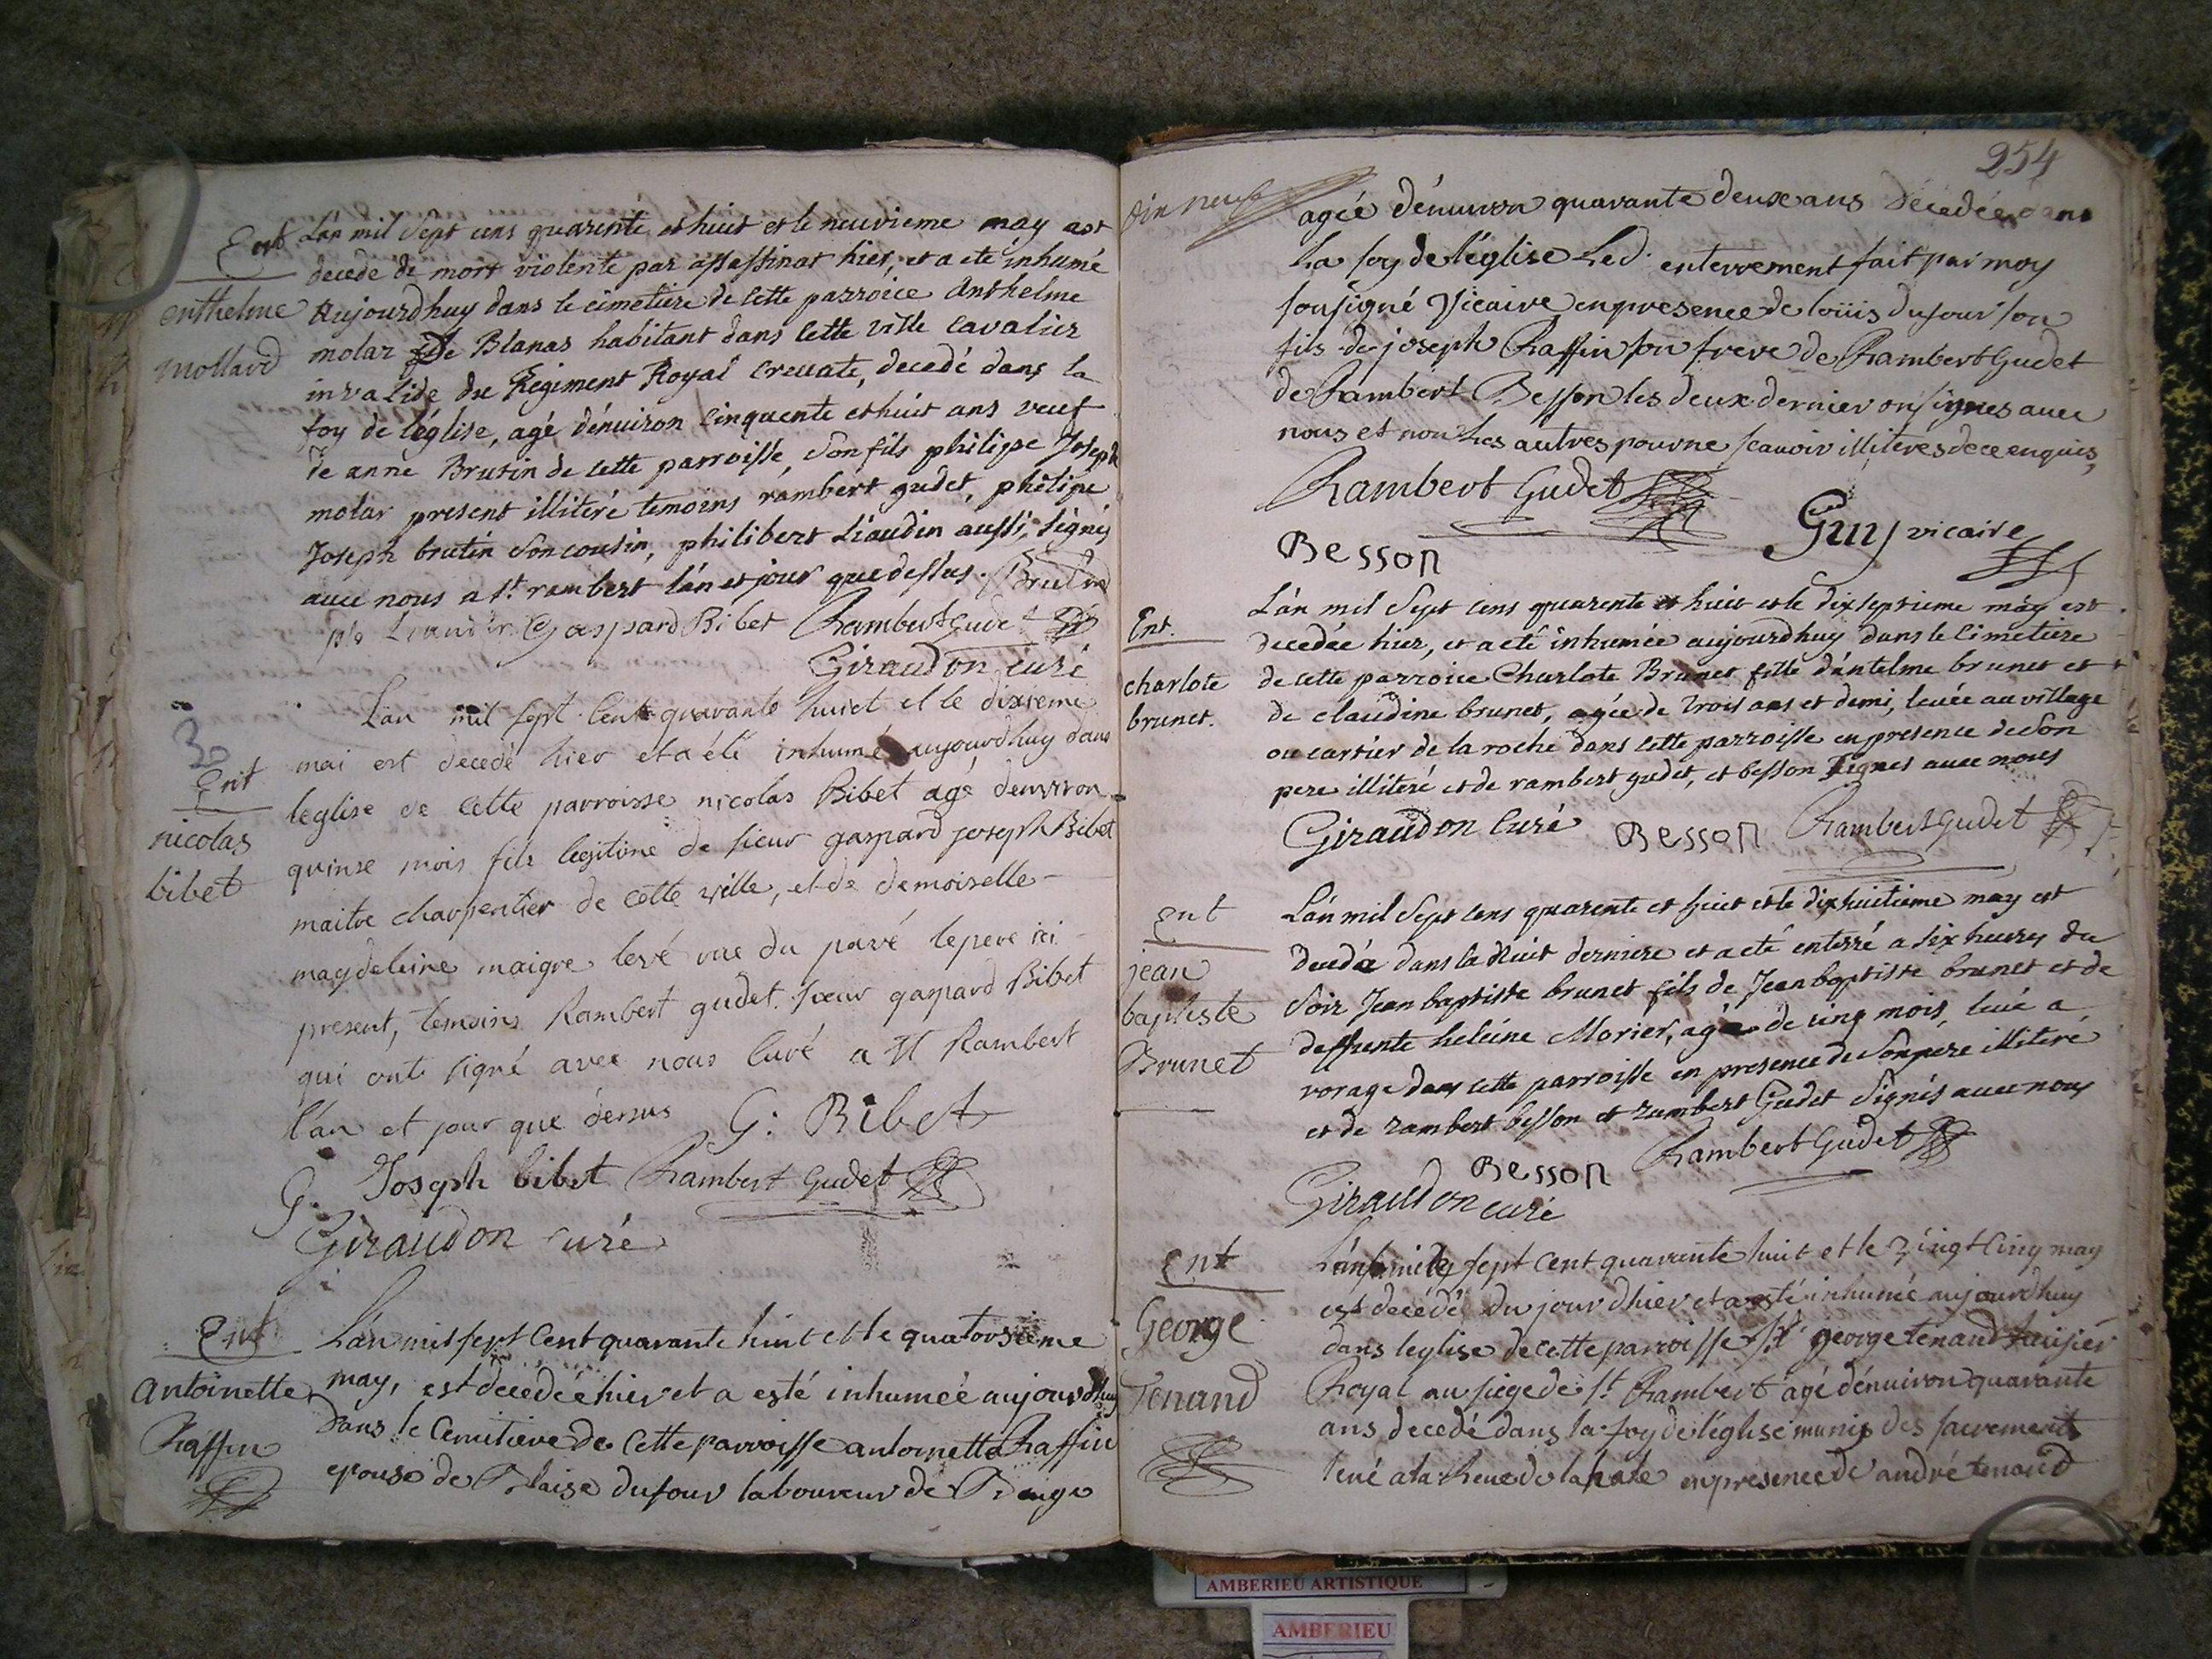 Ent
enthelme
mollard
L'an mil sept cens quarente et huit et le neuvieme may est
decede de mort violente par assassinat hier, et a eté inhumé
Aujourdhuy dans le cimetiere de cette parroice Anthelme
molar de Blanas habitant dans cette ville cavalier
invalide du Regiment Royal Crevate, decedé dans la
foy de l'église, agé d'enuiron cinquente et huit ans veuf
de anne Brutin de cette parroisse, son fils philippe Joseph
molar present illitéré temoins rambert gudet, philipe
Joseph brutin son cousin, philibert Liaudin aussi signés
avec nous a st. rambert l'an et jour que dessus. Brutin
Liaudin Gaspard Bibet Rambert Gudet
Giraudon curé
30
Ent
nicolas
bibet
L'an mil sept cent quarante huict et le dixieme
mai est decedé hier et a été inhumé aujourdhuy dans
leglise de cette parroisse nicolas Bibet agé denviron
quinse mois fils legitime de sieur gaspard joseph Bibet
maitre charpentier de cette ville, et de demoiselle
magdeleine maigre levé rue du pavé le pere ici
present, temoins Rambert gudet. sieur gaspard Bibet
qui ont signé avec nous curé a St Rambert
l'an et jour que dessus G: Bibet
G. Joseph bibet Rambert Gudet
Giraudon curé
Ent
Antoinette
Raffin
L'an mil sept cent quarante huit et le quatorsieme
may, est decedée hier et a esté inhumeé aujourdhuy
Dans le Cemitiere de Cette parroisse antoinette Raffin
epouse de Blaise dufour laboureur de
254
agée d'enuiron quarante deux ans Décedée dans
La foy de l'église Led. enterrement fait par moy
sousigné Vicaire en presence de loüis dufour son
fils de joseph Raffin son frere de Rambert Gudet
de Rambert Besson les deux dernier on signes auec
nous et non les autres pour ne scauoir illiteres de ce enquis,
Rambert Gudet
Besson Guy vicaire
Ent.
charlote
brunet.
L'an mil sept cens quarente et huit et le dix septieme may est
decedée hier, et a eté inhumée aujourdhuy dans le cimetiere
de cette parroice Charlote Brunet fille d'antelme brunet et
de claudine brunet, agée de trois ans et demi, levée au village
ou cartier de la roche dans cette parroisse en presence de son
pere illiteré et de rambert gudet, et besson signes avec nous
Giraudon Curé Besson Rambert Gudet
Ent
jean
baptiste
Brunet
L'an mil sept cens quarente et huit et le dix huitieme may est
decedé dans la nuit derniere et a eté enterré a six heures du
soir Jean baptiste brunet fils de Jean baptiste brunet et de
deffunte heleine Morier, agé de cinq mois, levé a
vorage dans cette parroisse en presence de son pere illiteré
et de rambert besson et rambert Gudet signés avec nous
Besson Rambert Gudet
Giraudon curé
Ent
George
Tenand
L'an mil sept cent quarante huit et le vingt cinq may
est decédé du jour dhier et a esté inhumé aujourdhuy
dans leglise de cette parroisse Sr george tenand huissier
Royal au siege de St. Rambert agé d'enuiron quarante
ans decedé dans la foy de l'église munis des sacrements
leué a la Rue de la hale en presence de andré tenand
AMBERIEU ARTISTIQUE
AMBERIEU